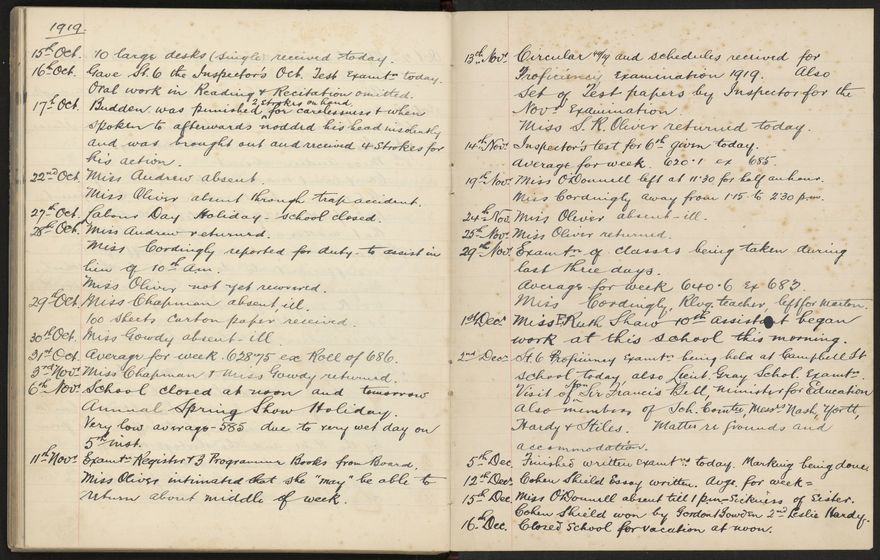 1919.
15th Oct. 10 large desks (single) received today.
16th Oct. Gave St. 6 the Inspector's Oct. Test Examtn today.
Oral work in Reading & Recitation omitted.
17th Oct. Budden was punished 2 strokes on hand for carelessness & when
spoken to afterwards nodded his head insolently
and was brought out and received 4 strokes for
his action.
22nd Oct. Miss Andrew absent.
Miss Oliver absent through trap accident.
27th Oct. Labour Day Holiday - School closed.
28th Oct. Miss Andrew returned.
Miss Cordingly reported for duty - to assist in
lieu of 10th Am.
Miss Oliver not yet recovered.
29th Oct. Miss Chapman absent, ill.
100 sheets carbon paper received.
30th Oct. Miss Gowdy absent - ill.
31st Oct. Average for week 628.75 ex Roll of 686.
3rd Nov. Miss Chapman & Miss Gowdy returned.
6th Nov. School closed at noon and tomorrow
Annual Spring Show Holiday.
Very low average - 585 due to very wet day on
5th inst.
11th Nov. Examtn Register & 3 Programme Books from Board.
Miss Oliver intimated that she "may" be able to
return about middle of week.
13th Nov. Circular and schedules received for
Proficiency Examination 1919. Also
Set of Test papers by Inspector for the
Nov. Examination.
Miss S. R. Oliver returned today.
14th Nov. Inspector's test for 6th given today.
Average for week. 620.1 ex 685.
19th Nov. Miss O'Donnell left at 11.30 for half an hour.
Miss Cordingly away from 1.15 to 2.30 p.m.
24th Nov. Miss Oliver absent - ill.
25th Nov. Miss Oliver returned.
29th Nov. Examtn of classes being taken during
last three days.
Average for week 640.6 ex 683.
Miss Cordingly, Relvg. teacher, left for Marton.
1st Dec. Miss E. Ruth Shaw 10th assistant began
work at this school this morning.
2nd Dec. St. 6 Proficiency Examtn being held at Campbell St
School today, also Lieut. Gray Schol. Examtn.
Visit of Hon Sir Francis Bell, Minister for Education
also members of Sch. Comtee, Messrs Nash, York,
Hardy & Stiles. Matter re grounds and
accommodation.
5th Dec. Finished written examtns today. Marking being done.
12th Dec. Cohen Shield Essay written. Avge. for week =
15th Dec. Miss O'Donnell absent till 1 p.m - Sickness of Sister.
Cohen Shield won by Gordon Gowden 2nd Leslie Hardy.
16th Dec. Closed School for vacation at noon.